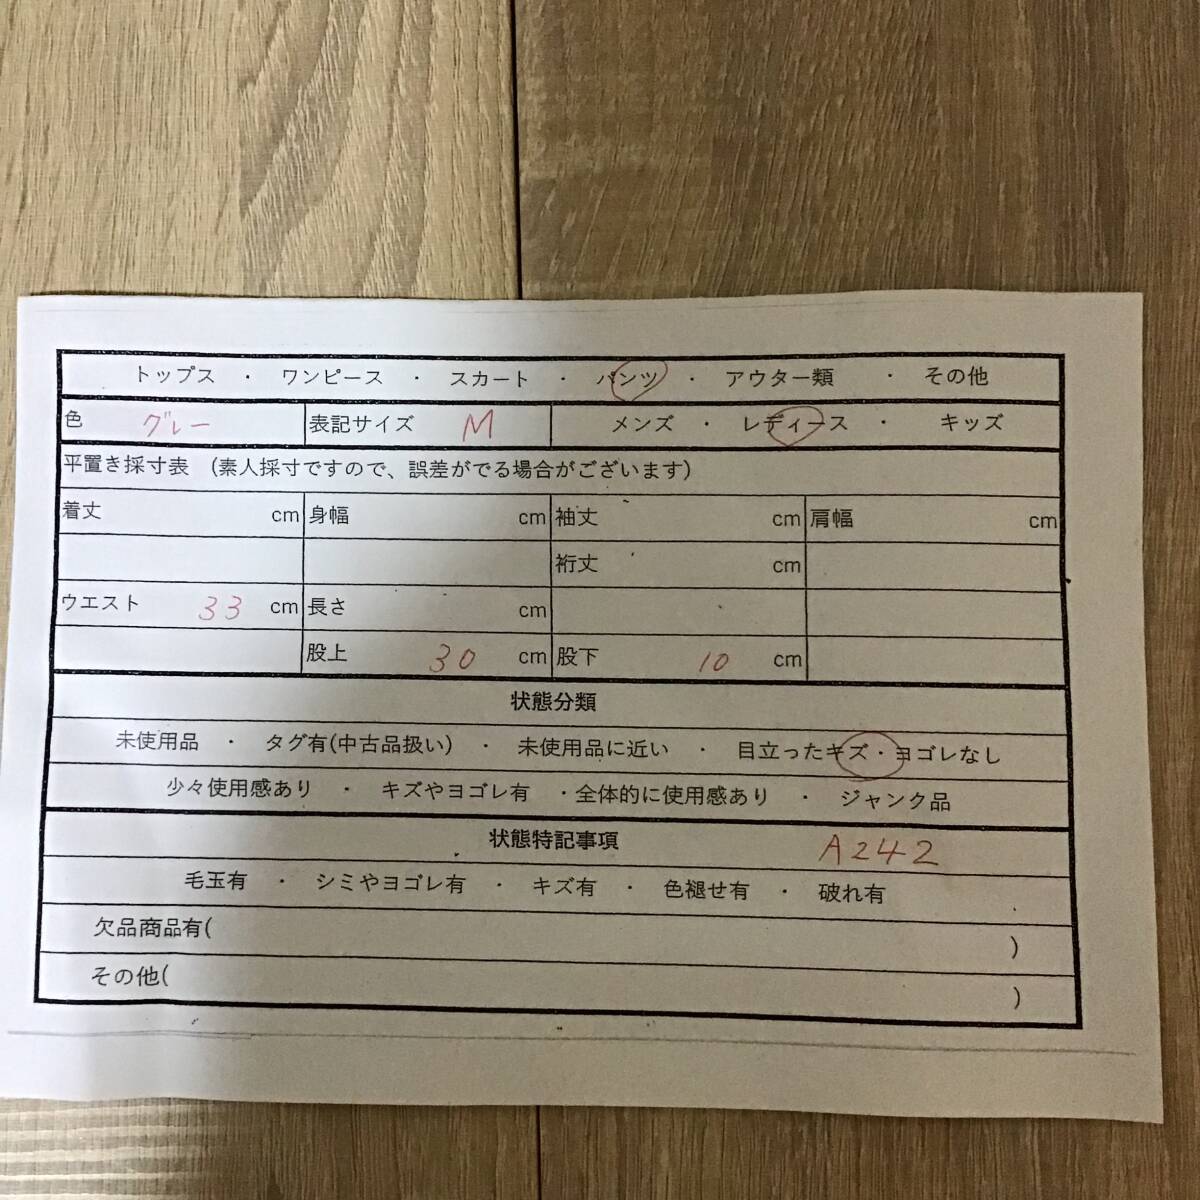 トップス ・ ワンピース ・ スカート ・ パンツ ・ アウター類 ・ その他
色 グレー 表記サイズ M メンズ ・ レディース ・ キッズ
平置き採寸表 (素人採寸ですので、誤差がでる場合がございます)
着丈 cm 身幅 cm 袖丈 cm 肩幅 cm
裄丈 cm
ウエスト 33 cm 長さ cm
股上 30 cm 股下 10 cm
状態分類
未使用品 ・ タグ有(中古品扱い) ・ 未使用品に近い ・ 目立ったキズ・ヨゴレなし
少々使用感あり ・ キズやヨゴレ有 ・全体的に使用感あり ・ ジャンク品
状態特記事項 A242
毛玉有 ・ シミやヨゴレ有 ・ キズ有 ・ 色褪せ有 ・ 破れ有
欠品商品有( )
その他( )